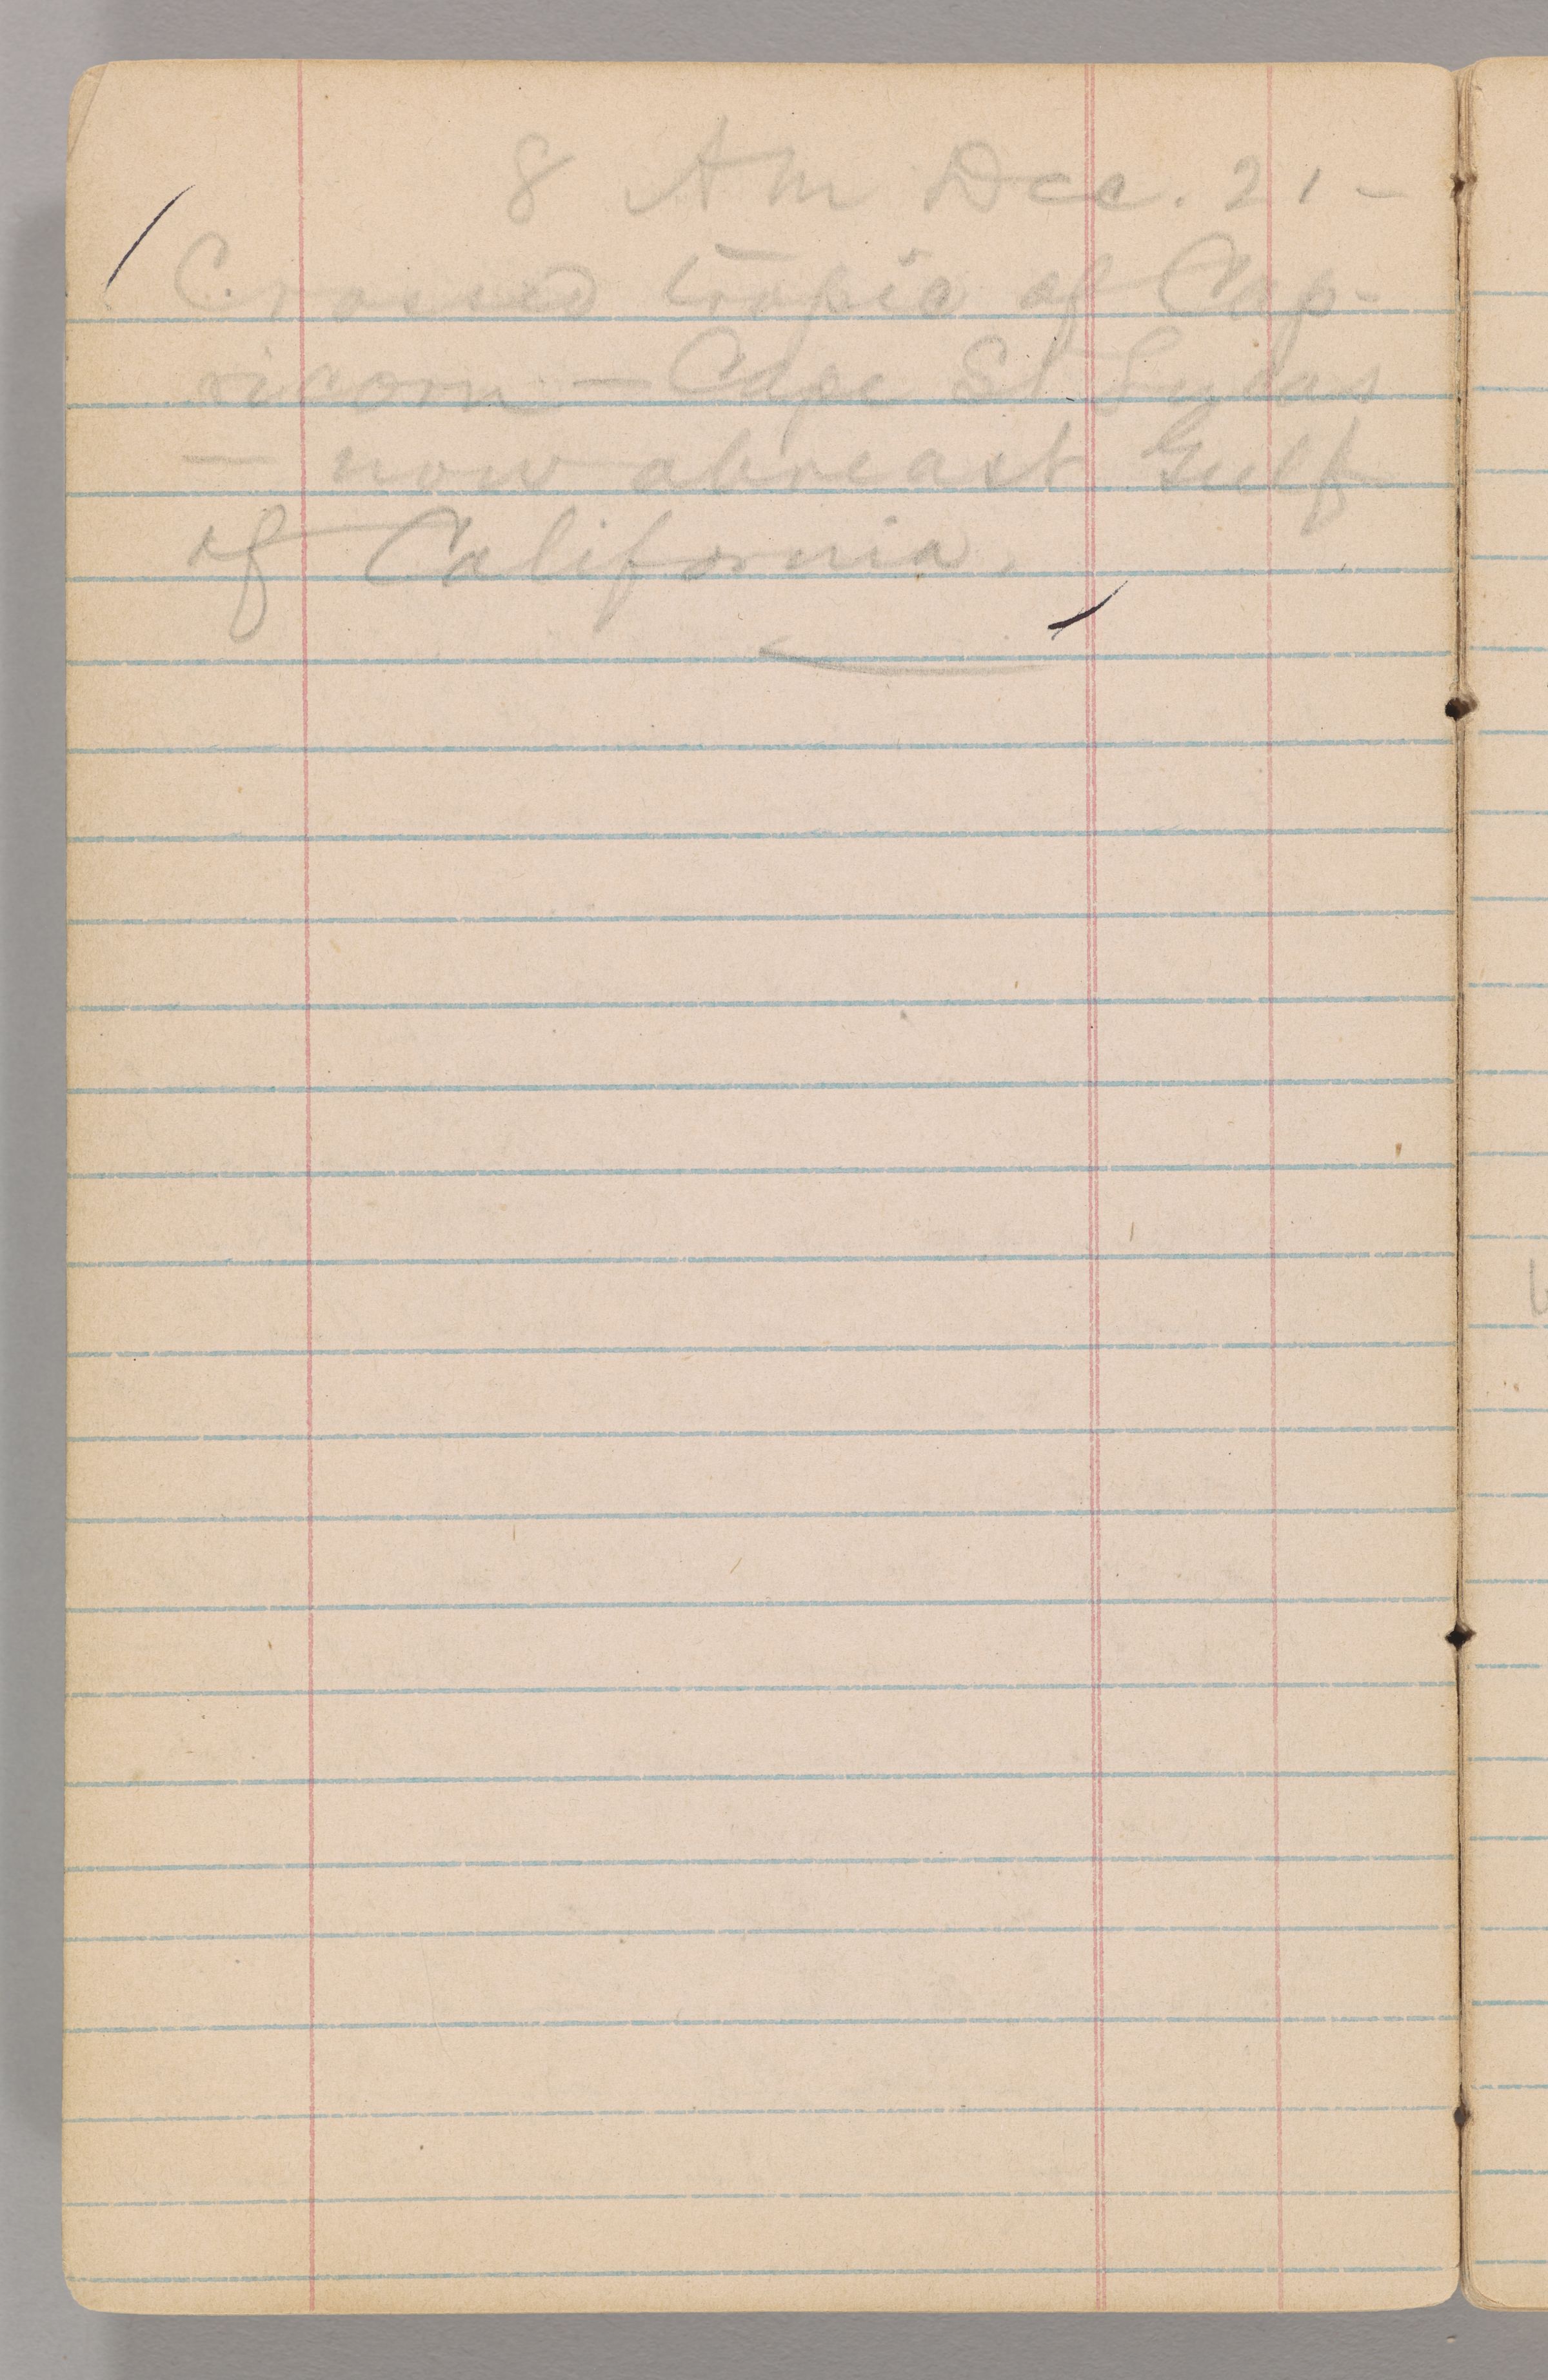 8 AM Dec. 21 -
Crossed tropic of Cap-
ricorn — Cape St Lucas
— now abreast Gulf
of California.